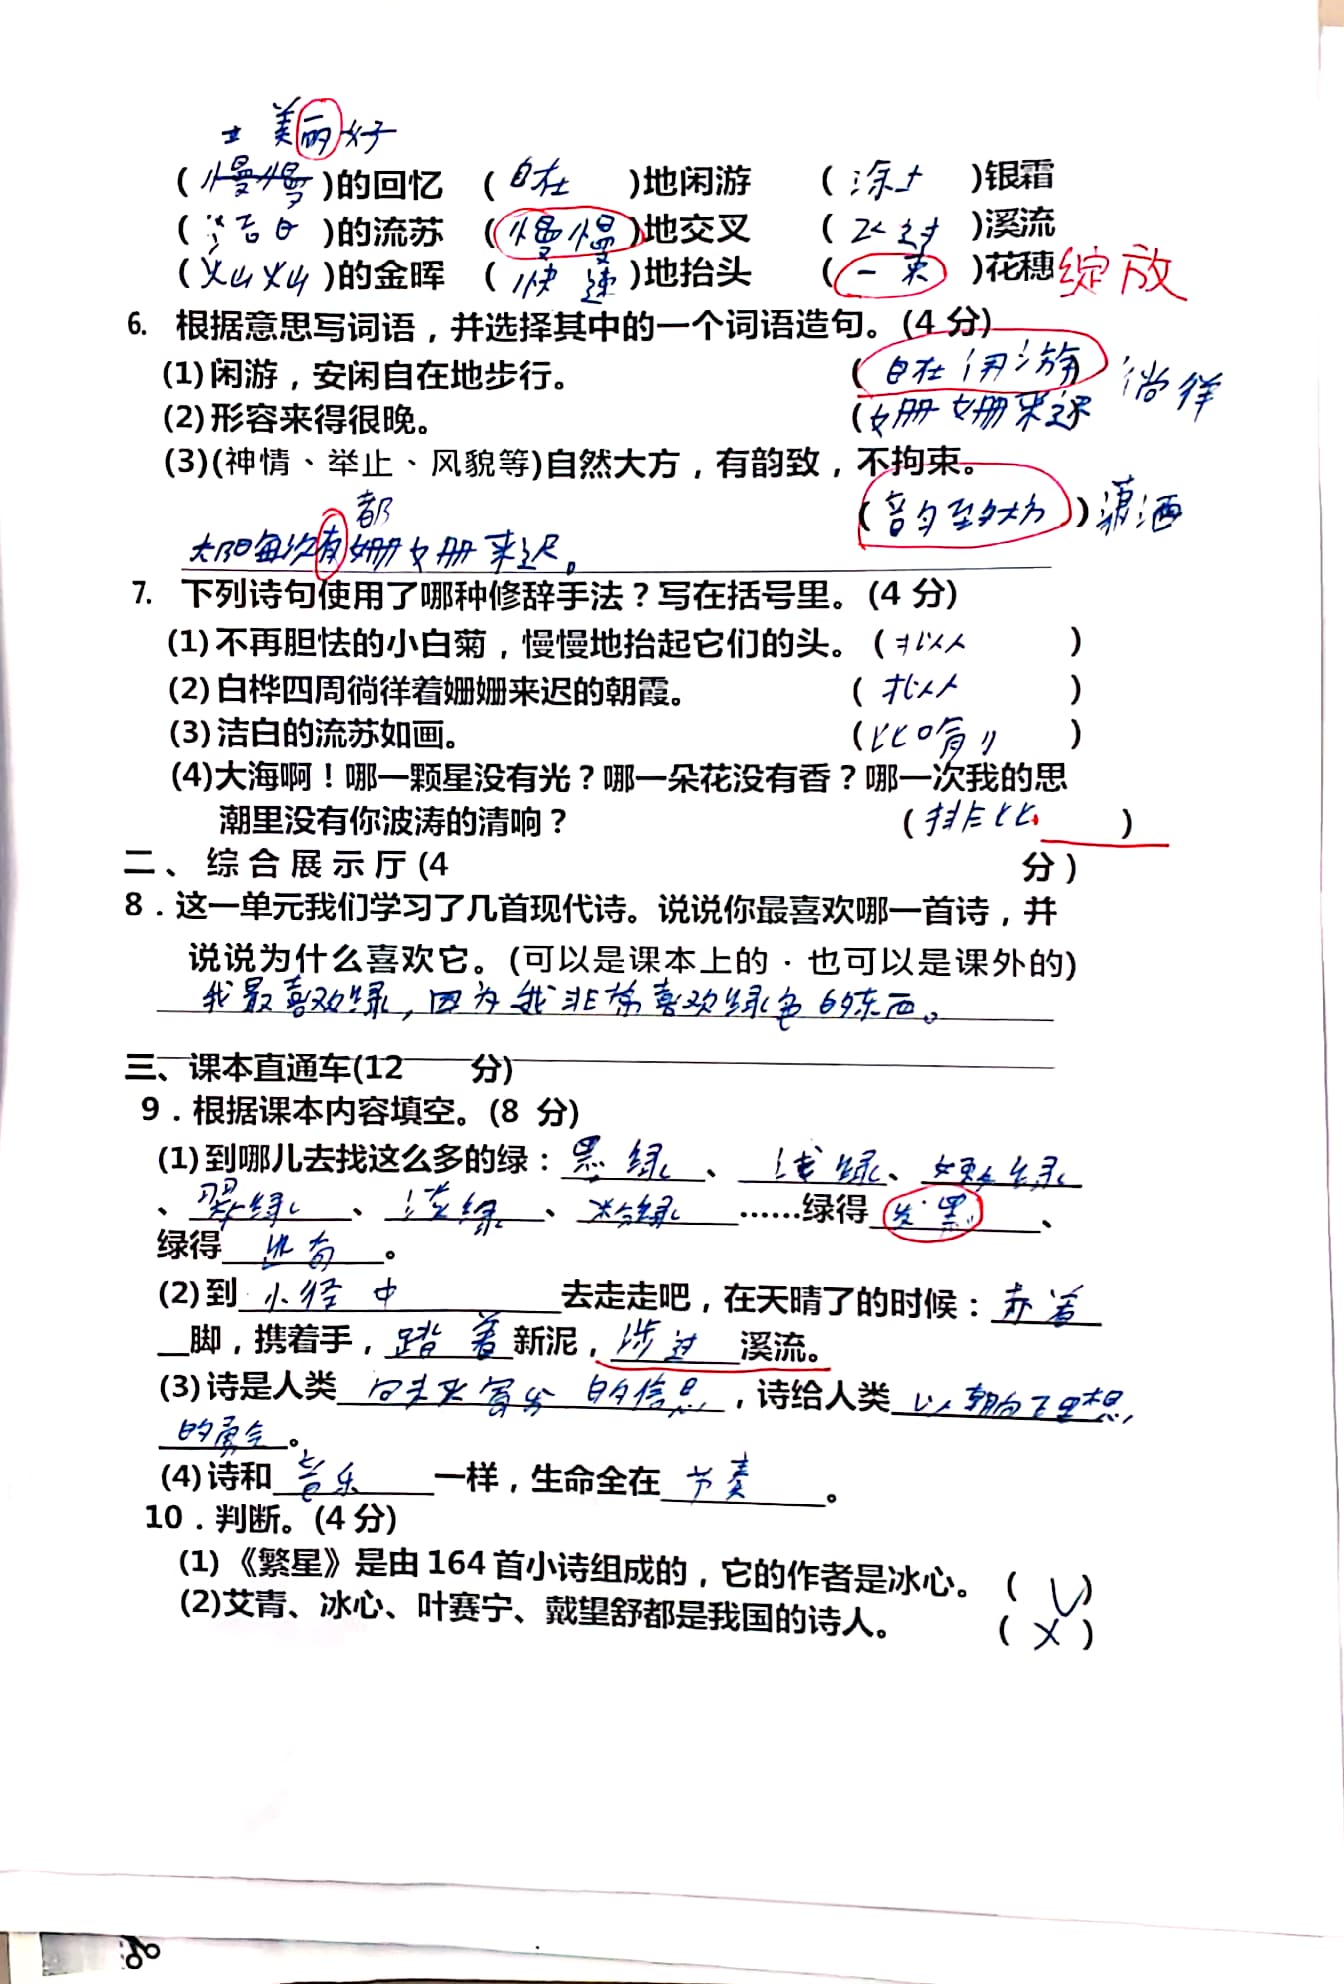 美丽好
(慢慢)的回忆 (自在)地闲游 (涂上)银霜
(洁白)的流苏 (慢慢)地交叉 ( )溪流
(灿灿)的金晖 (快速)地抬头 (一束)花穗 绽放
6. 根据意思写词语，并选择其中的一个词语造句。(4 分)
(1)闲游，安闲自在地步行。 (自在闲游) 徜徉
(2)形容来得很晚。 (姗姗来迟
(3)(神情、举止、风貌等)自然大方，有韵致，不拘束。
( ) 潇洒
都
太阳每次有姗姗来迟。
7. 下列诗句使用了哪种修辞手法？写在括号里。(4 分)
(1)不再胆怯的小白菊，慢慢地抬起它们的头。(拟人)
(2)白桦四周徜徉着姗姗来迟的朝霞。 (拟人)
(3)洁白的流苏如画。 (比喻)
(4)大海啊！哪一颗星没有光？哪一朵花没有香？哪一次我的思
潮里没有你波涛的清响？ (排比)
二、综合展示厅(4 分)
8．这一单元我们学习了几首现代诗。说说你最喜欢哪一首诗，并
说说为什么喜欢它。(可以是课本上的·也可以是课外的)
我最喜欢绿，因为我非常喜欢绿色的东西。
三、课本直通车(12 分)
9．根据课本内容填空。(8 分)
(1)到哪儿去找这么多的绿：墨绿、浅绿、嫩绿
、翠绿、淡绿、粉绿……绿得发黑、
绿得出奇。
(2)到小径中去走走吧，在天晴了的时候：赤着
脚，携着手，踏着新泥，涉过溪流。
(3)诗是人类向未来寄发的信息，诗给人类以朝向理想
的勇气。
(4)诗和音乐一样，生命全在节奏。
10．判断。(4 分)
(1)《繁星》是由 164 首小诗组成的，它的作者是冰心。(√)
(2)艾青、冰心、叶赛宁、戴望舒都是我国的诗人。 (×)